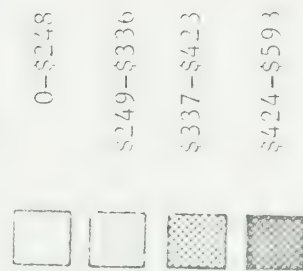 0–$248
$249–$336
$337–$423
$424–$593